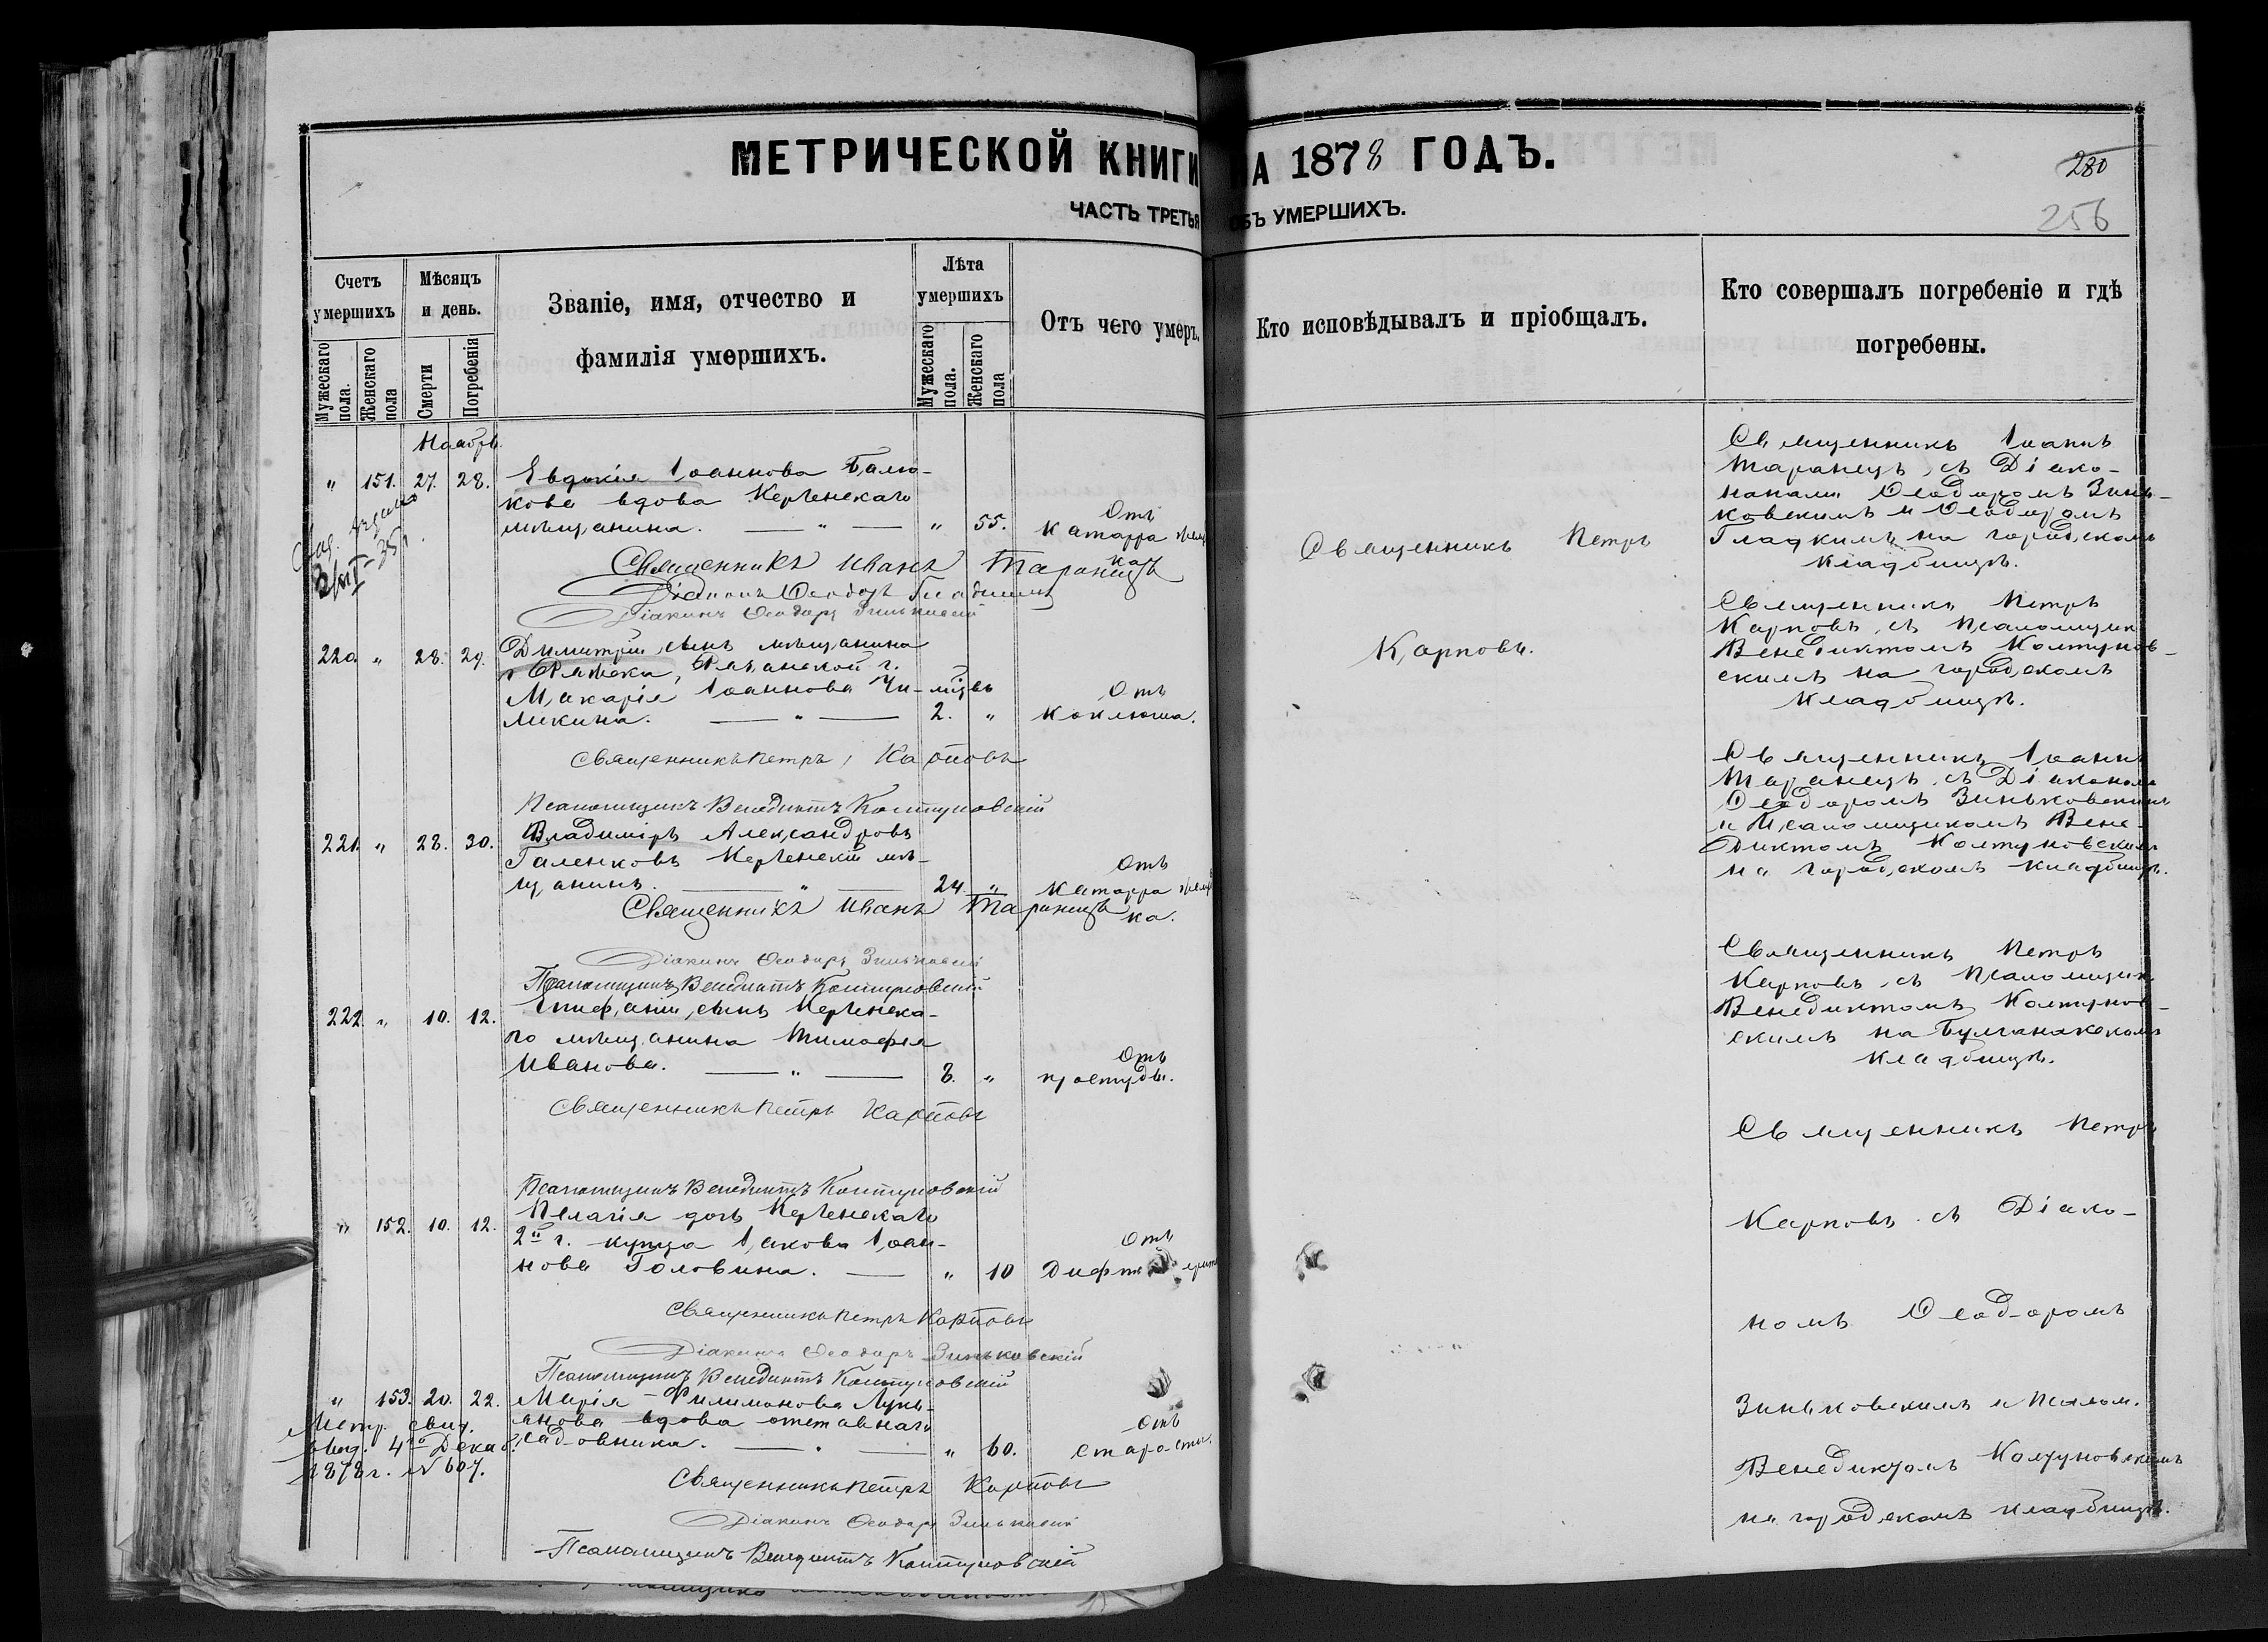 МЕТРИЧЕСКОЙ КНИГИ НА 1878 ГОДЪ.
280
256
ЧАСТЬ ТРЕТЬЯ ОБЪ УМЕРШИХЪ.
Счетъ умершихъ
Мужескаго пола.
Женскаго пола
Мѣсяцъ и день.
Смерти
Погребенія
Званіе, имя, отчество и
фамилія умершихъ.
Лѣта умершихъ
Мужескаго пола.
Женскаго пола
Отъ чего умеръ.
Кто исповѣдывалъ и пріобщалъ.
Кто совершалъ погребеніе и гдѣ
погребены.
Ноябрь.
" 151. 27. 28. Евдокія Іоаннова
кова вдова Керченскаго
мѣщанина. — " — " 55. Отъ катарра
Священникъ Иванъ Таранецъ
Діаконъ Ѳеодоръ Гладкій
Діаконъ Ѳеодоръ Зиньковскій
220. " 28. 29. Димитрій, сынъ мѣщанина
г. Ряжска, Рязанской г.
Макарія Іоаннова Чи-
ликина. — " — 2. " Отъ коклюша.
Священникъ Петръ Карповъ
Псаломщикъ Венедиктъ Колтуновскій
221. " 28. 30. Владиміръ Александровъ
Галенковъ Керченскій мѣ-
щанинъ. — " — 24. " Отъ катарра
ка.
Священникъ Иванъ Таранецъ
Діаконъ Ѳеодоръ Зиньковскій
Псаломщикъ Венедиктъ Колтуновскій
222. " 10. 12. Епифаній, сынъ Керченска-
го мѣщанина Тимофея
Иванова. — " — 8. " Отъ простуды.
Священникъ Петръ Карповъ
Псаломщикъ Венедиктъ Колтуновскій
" 152. 10. 12. Пелагія дочь Керченскаго
2й г. купца Іакова Іоан-
нова Головина. — " 10 Отъ
Священникъ Петръ Карповъ
Діаконъ Ѳеодоръ Зиньковскій
Псаломщикъ Венедиктъ Колтуновскій
" 153. 20. 22. Марія Филимонова Лукь-
янова вдова отставнаго
садовника. — " — " 60. Отъ старости.
Метр. свид.
выд. 4го Декаб.
1878 г. № 607.
Священникъ Петръ Карповъ
Діаконъ Ѳеодоръ Зиньковскій
Псаломщикъ Венедиктъ Колтуновскій
Священникъ Петръ
Карповъ.
Священникъ Іоаннъ
Таранецъ, съ Діако-
нами Ѳеодоромъ Зинь-
ковскимъ и Ѳеодоромъ
Гладкимъ на городскомъ
кладбищѣ.
Священникъ Петръ
Карповъ, съ Псаломщик.
Венедиктомъ Колтунов-
скимъ на городскомъ
кладбищѣ.
Священникъ Іоаннъ
Таранецъ, съ Діакономъ
Ѳеодоромъ Зиньковскимъ
и Псаломщикомъ Вене-
диктомъ Колтуновскимъ
на городскомъ кладбищѣ.
Священникъ Петръ
Карповъ, съ Псаломщик.
Венедиктомъ Колтунов-
скимъ на Булганакскомъ
кладбищѣ.
Священникъ Петръ
Карповъ съ Діако-
номъ Ѳеодоромъ
Зиньковскимъ и Псалом.
Венедиктомъ Колтуновскимъ
на городскомъ кладбищѣ.